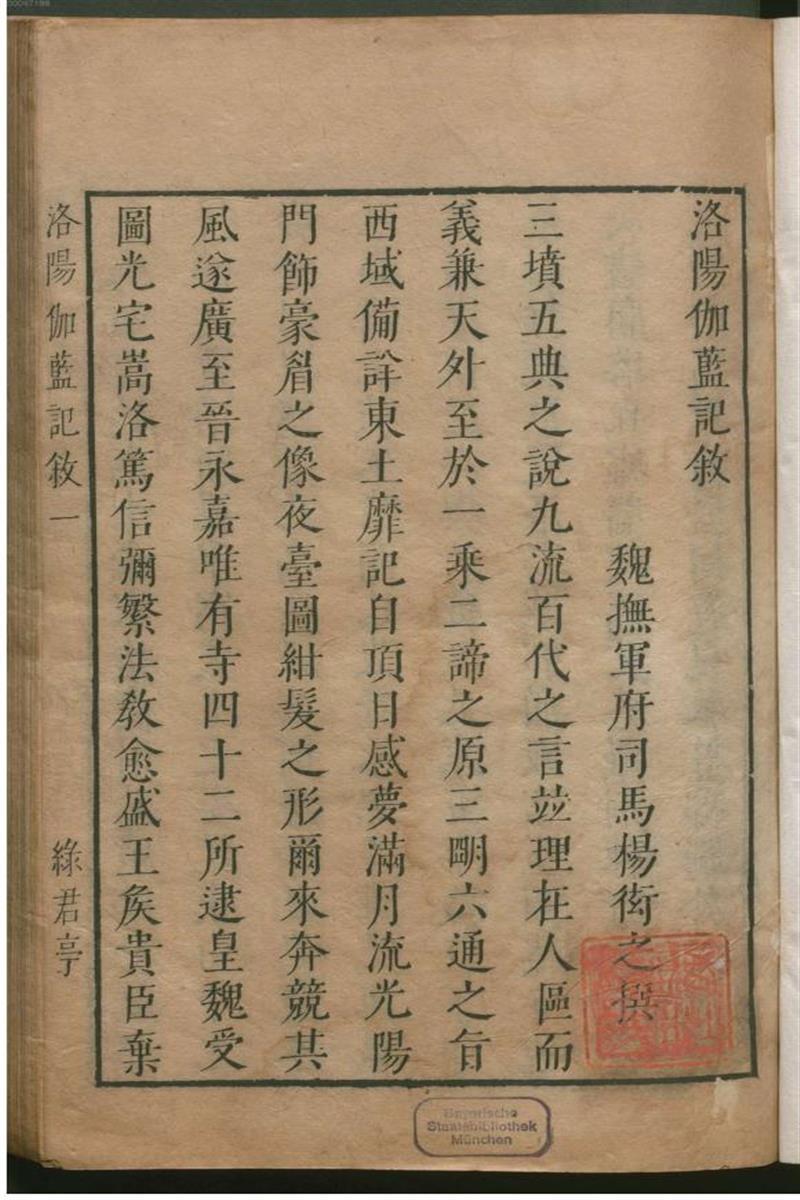 洛陽伽藍記敘
魏撫軍府司馬楊衒之撰
三墳五典之說九流百代之言竝理在人區而
義兼天外至於一乘二諦之原三明六通之旨
西域備詳東土靡記自頂日感夢滿月流光陽
門飾豪眉之像夜臺圖紺髮之形爾來奔競其
風遂廣至晉永嘉唯有寺四十二所逮皇魏受
圖光宅嵩洛篤信彌繁法教愈盛王矦貴臣棄
洛陽伽藍記敘 一
綠君亭
Bayerische
Staatsbibliothek
München